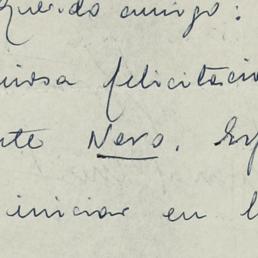 Querido amigo:
felicitacio
Nero.
iniciar en l